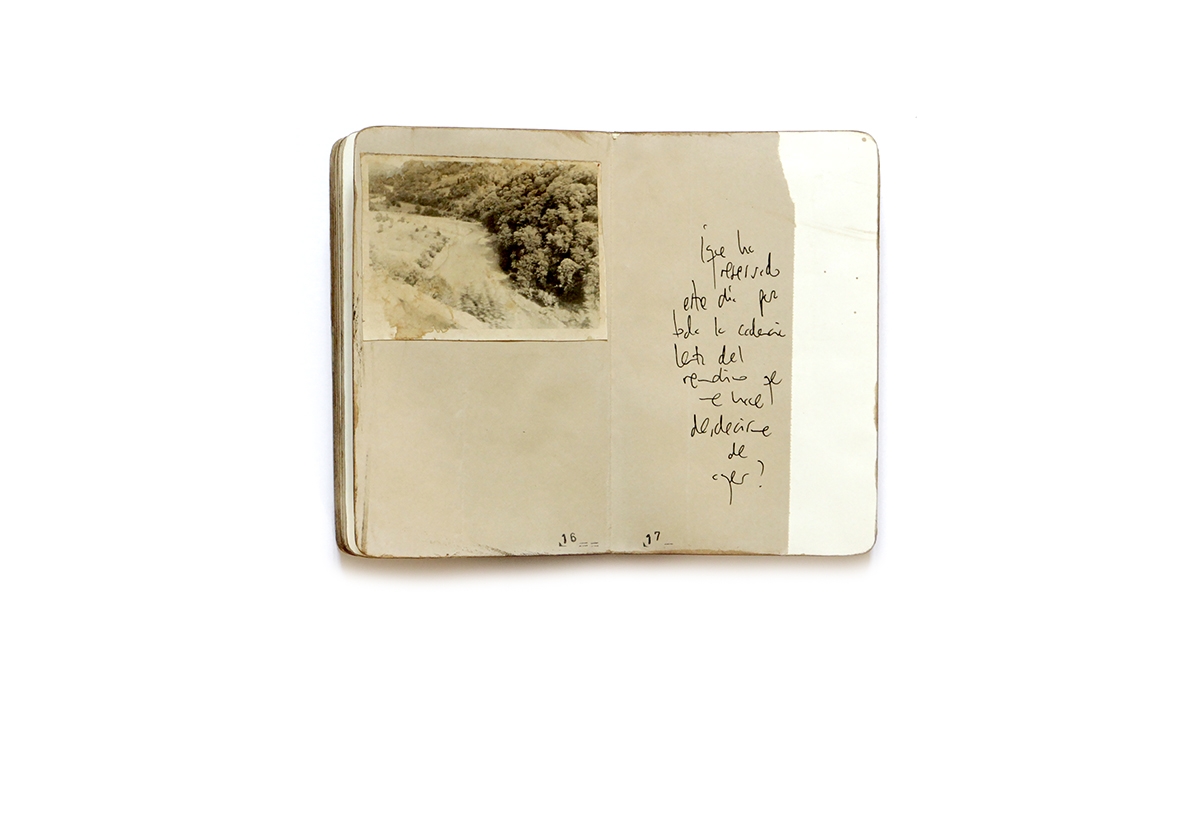 ¿que ha
reservado
este día por
toda la cadencia
lenta del
que
me hace
desdecirme
de
ayer?
16
17